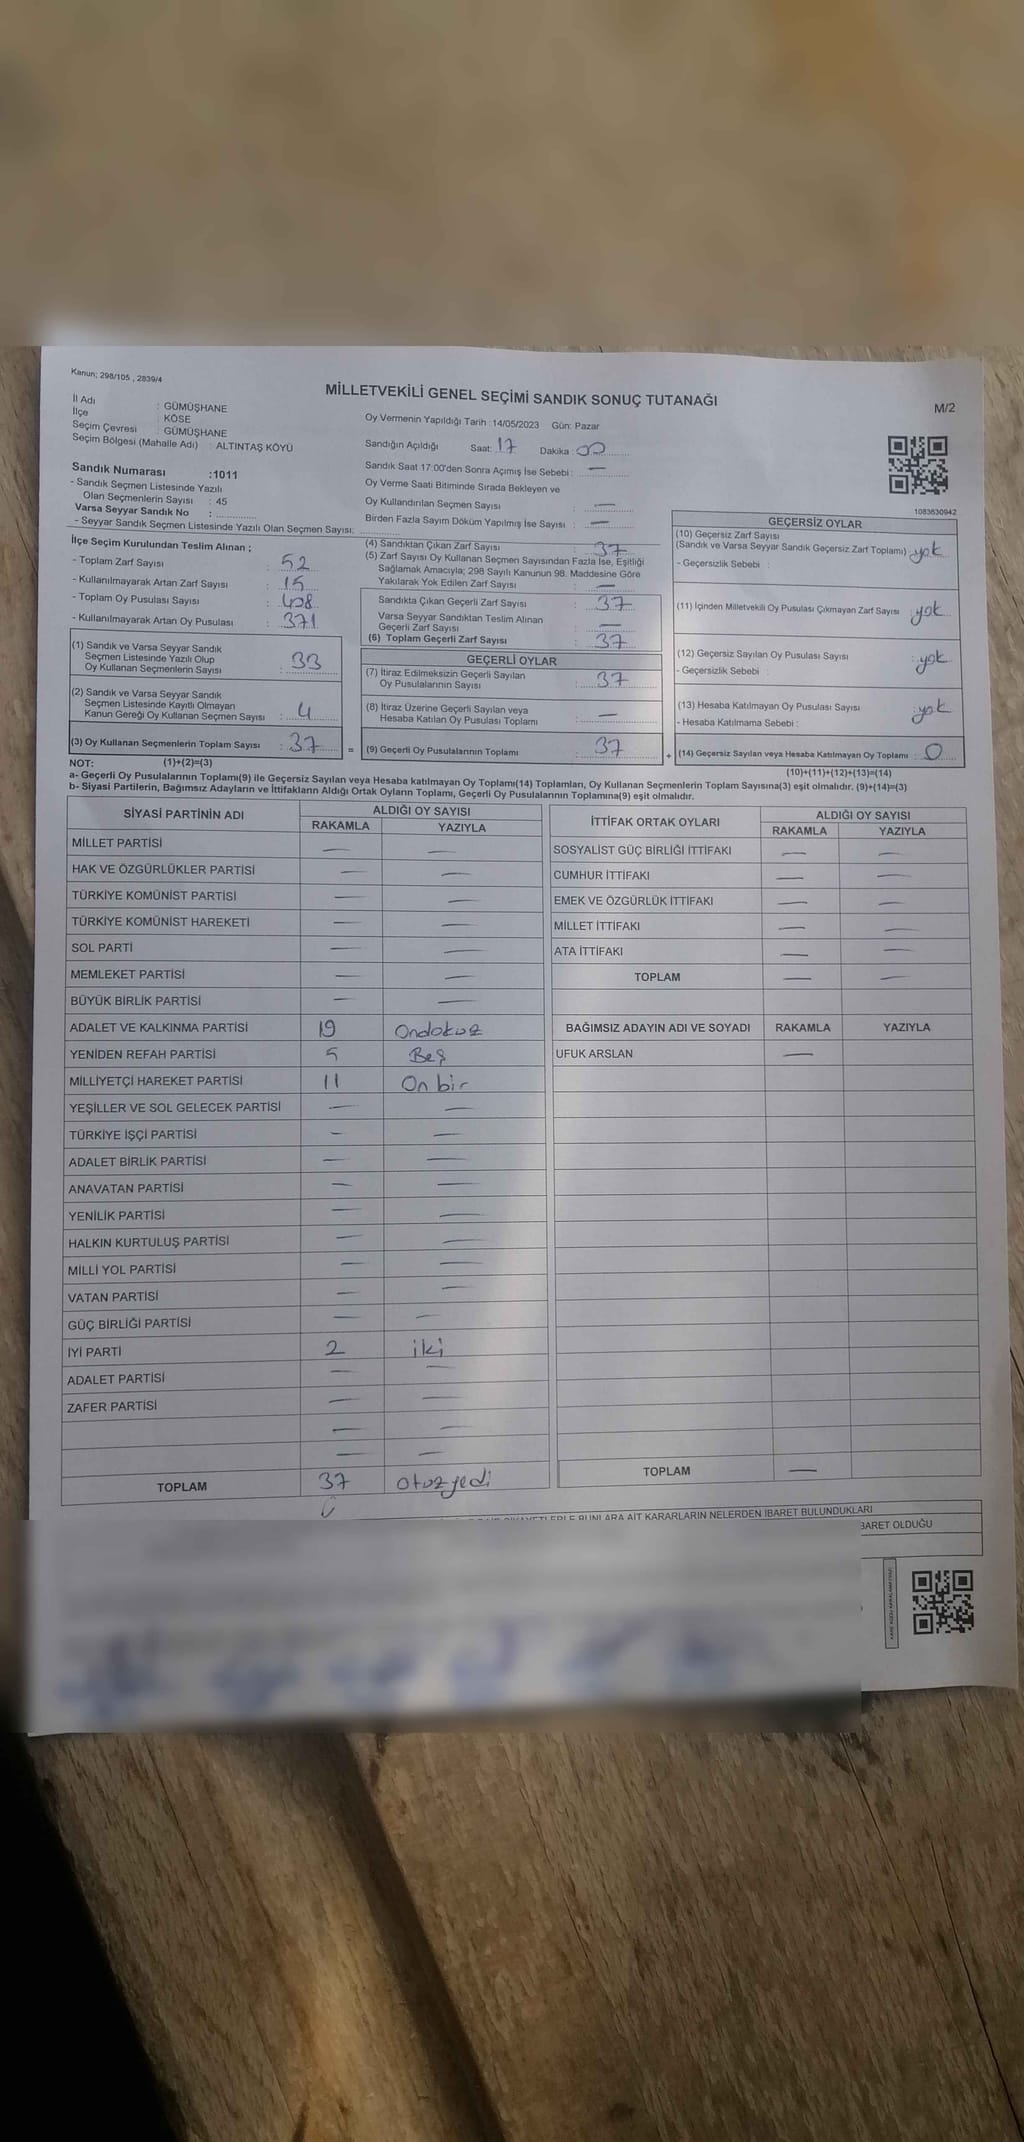 Kanun; 298/105 , 2839/4
MİLLETVEKİLİ GENEL SEÇİMİ SANDIK SONUÇ TUTANAĞI
M/2
İl Adı : GÜMÜŞHANE
İlçe : KÖSE
Seçim Çevresi : GÜMÜŞHANE
Seçim Bölgesi (Mahalle Adı) : ALTINTAŞ KÖYÜ
Oy Vermenin Yapıldığı Tarih : 14/05/2023 Gün: Pazar
Sandığın Açıldığı Saat: 17 Dakika : 00
Sandık Saat 17:00'den Sonra Açımış İse Sebebi : —
Oy Verme Saati Bitiminde Sırada Bekleyen ve
Oy Kullandırılan Seçmen Sayısı : —
Birden Fazla Sayım Döküm Yapılmış İse Sayısı : —
Sandık Numarası :1011
- Sandık Seçmen Listesinde Yazılı
Olan Seçmenlerin Sayısı : 45
Varsa Seyyar Sandık No :
- Seyyar Sandık Seçmen Listesinde Yazılı Olan Seçmen Sayısı:
1083630942
İlçe Seçim Kurulundan Teslim Alınan ;
- Toplam Zarf Sayısı : 52
- Kullanılmayarak Artan Zarf Sayısı : 15
- Toplam Oy Pusulası Sayısı : 408
- Kullanılmayarak Artan Oy Pusulası : 371
(1) Sandık ve Varsa Seyyar Sandık
Seçmen Listesinde Yazılı Olup
Oy Kullanan Seçmenlerin Sayısı : 33
(2) Sandık ve Varsa Seyyar Sandık
Seçmen Listesinde Kayıtlı Olmayan
Kanun Gereği Oy Kullanan Seçmen Sayısı : 4
(3) Oy Kullanan Seçmenlerin Toplam Sayısı : 37 =
NOT: (1)+(2)=(3)
(4) Sandıktan Çıkan Zarf Sayısı : 37
(5) Zarf Sayısı Oy Kullanan Seçmen Sayısından Fazla İse, Eşitliği
Sağlamak Amacıyla; 298 Sayılı Kanunun 98. Maddesine Göre
Yakılarak Yok Edilen Zarf Sayısı : —
Sandıkta Çıkan Geçerli Zarf Sayısı : 37
Varsa Seyyar Sandıktan Teslim Alınan
Geçerli Zarf Sayısı : —
(6) Toplam Geçerli Zarf Sayısı : 37
GEÇERLİ OYLAR
(7) İtiraz Edilmeksizin Geçerli Sayılan
Oy Pusulalarının Sayısı : 37
(8) İtiraz Üzerine Geçerli Sayılan veya
Hesaba Katılan Oy Pusulası Toplamı : —
(9) Geçerli Oy Pusulalarının Toplamı : 37 +
GEÇERSİZ OYLAR
(10) Geçersiz Zarf Sayısı
(Sandık ve Varsa Seyyar Sandık Geçersiz Zarf Toplamı) : yok
- Geçersizlik Sebebi :
(11) İçinden Milletvekili Oy Pusulası Çıkmayan Zarf Sayısı : yok
(12) Geçersiz Sayılan Oy Pusulası Sayısı : yok
- Geçersizlik Sebebi :
(13) Hesaba Katılmayan Oy Pusulası Sayısı : yok
- Hesaba Katılmama Sebebi :
(14) Geçersiz Sayılan veya Hesaba Katılmayan Oy Toplamı : 0
(10)+(11)+(12)+(13)=(14)
a- Geçerli Oy Pusulalarının Toplamı(9) ile Geçersiz Sayılan veya Hesaba katılmayan Oy Toplamı(14) Toplamları, Oy Kullanan Seçmenlerin Toplam Sayısına(3) eşit olmalıdır. (9)+(14)=(3)
b- Siyasi Partilerin, Bağımsız Adayların ve İttifakların Aldığı Ortak Oyların Toplamı, Geçerli Oy Pusulalarının Toplamına(9) eşit olmalıdır.
SİYASİ PARTİNİN ADI ALDIĞI OY SAYISI
RAKAMLA YAZIYLA
MİLLET PARTİSİ — —
HAK VE ÖZGÜRLÜKLER PARTİSİ — —
TÜRKİYE KOMÜNİST PARTİSİ — —
TÜRKİYE KOMÜNİST HAREKETİ — —
SOL PARTİ — —
MEMLEKET PARTİSİ — —
BÜYÜK BİRLİK PARTİSİ — —
ADALET VE KALKINMA PARTİSİ 19 Ondokuz
YENİDEN REFAH PARTİSİ 5 Beş
MİLLİYETÇİ HAREKET PARTİSİ 11 On bir
YEŞİLLER VE SOL GELECEK PARTİSİ — —
TÜRKİYE İŞÇİ PARTİSİ — —
ADALET BİRLİK PARTİSİ — —
ANAVATAN PARTİSİ — —
YENİLİK PARTİSİ — —
HALKIN KURTULUŞ PARTİSİ — —
MİLLİ YOL PARTİSİ — —
VATAN PARTİSİ — —
GÜÇ BİRLİĞİ PARTİSİ — —
İYİ PARTİ 2 iki
ADALET PARTİSİ — —
ZAFER PARTİSİ — —
— —
— —
TOPLAM 37 otuzyedi
İTTİFAK ORTAK OYLARI ALDIĞI OY SAYISI
RAKAMLA YAZIYLA
SOSYALİST GÜÇ BİRLİĞİ İTTİFAKI — —
CUMHUR İTTİFAKI — —
EMEK VE ÖZGÜRLÜK İTTİFAKI — —
MİLLET İTTİFAKI — —
ATA İTTİFAKI — —
TOPLAM — —
BAĞIMSIZ ADAYIN ADI VE SOYADI RAKAMLA YAZIYLA
UFUK ARSLAN —
TOPLAM —
BUNLARA AİT KARARLARIN NELERDEN İBARET BULUNDUKLARI
BARET OLDUĞU